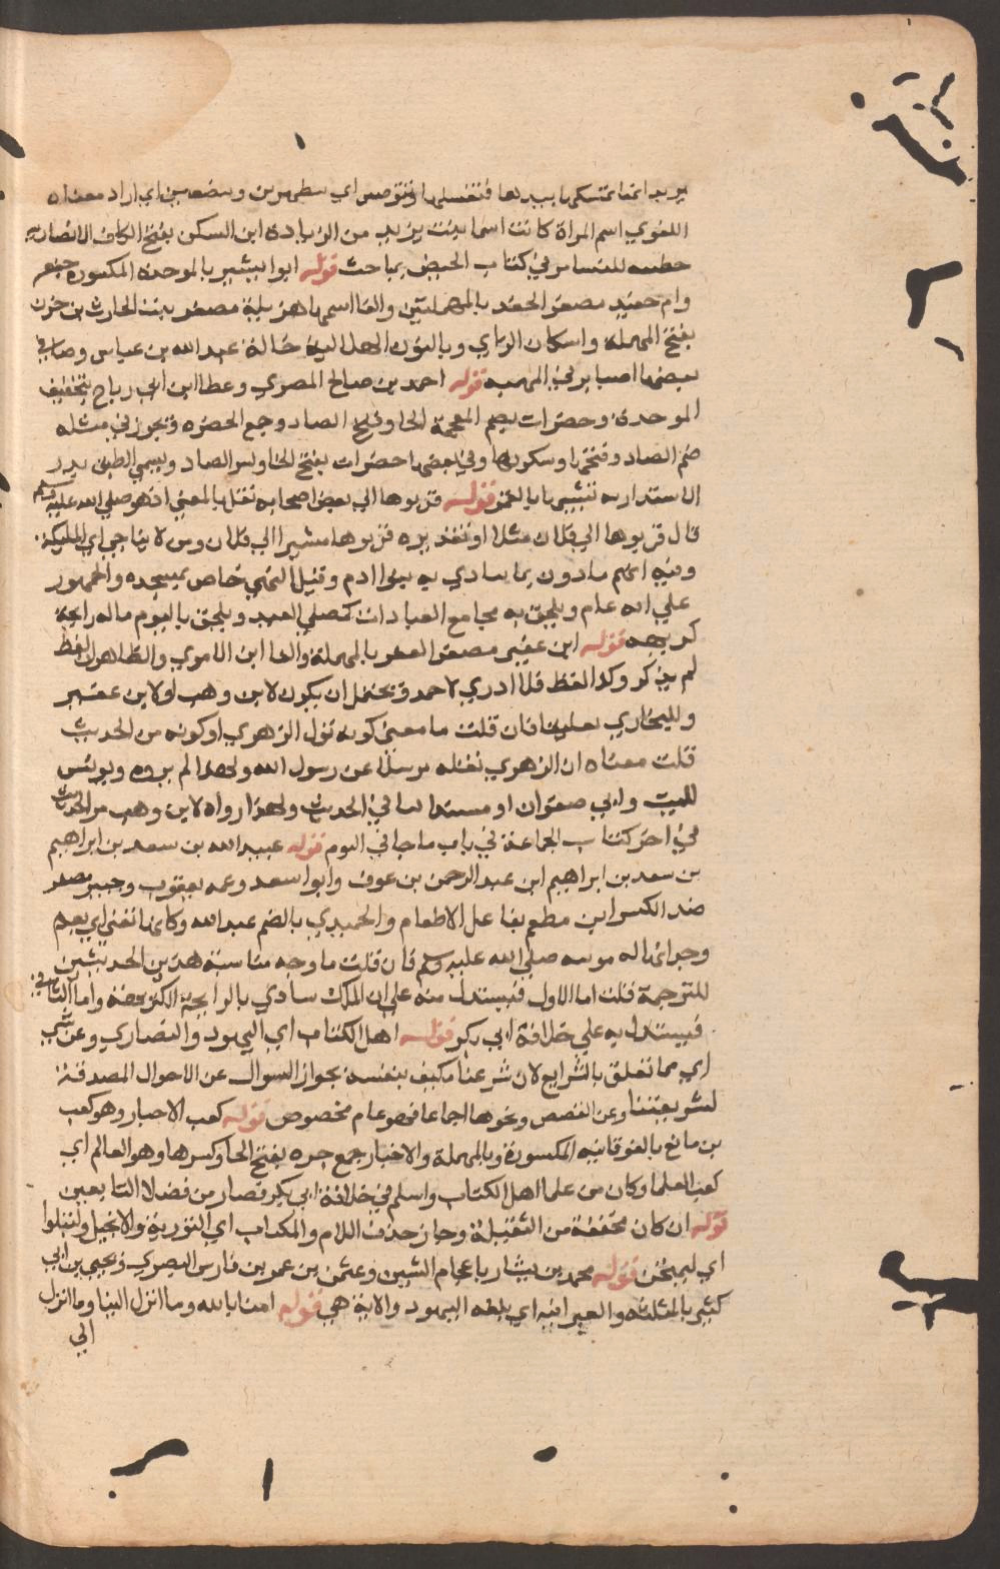 يريد انها تمسكها بيدها فتغسلها او تتوضئ اي تطهرين وتتضعين اي اراد معناه
اللغوي اسم المراة كانت اسما بنت يزيد من الزيادة ابن السكن بفتح الكاف الانصارية
خطيبه للنسا مر في كتاب الحيض بمباحث قوله ابوا بشير بالموحدة المكسورة جعفر
وام حفيد مصغر الحفد بالمهملتين والفا اسمها هزيلة مصغر بنت الحارث بن حزن
بفتح المهملة واسكان الزاي وبالنون الهلالية خالة عبد الله بن عباس وضا في
بعضها اضبا بر في المهبه قوله احمد بن صالح المصري وعطا ابن ابي رباح بتخفيف
الموحدة وحضرات بضم المعجمة الخا وفتح الضاد وجمع الخضره ويجوز في مثله
ضم الضاد وفتحها وسكونها وفي بعضها خضرات بفتح الخا وكسر الضاد ويسمي الطبق بدر
الاستدارته تشبيها بالقمر قوله قربوها الي بعض اصحابه نقل بالمعني اذ هو صلي الله عليه وسلم
قال قربوها الي فلان مثلا او تقديره قربوها مشيرا الي فلان ومن لا يناجي اي الملايكة
وفيه انهم يتاذون بما يتاذي به بنوا ادم وقيل النهي خاص بمسجده والجمهور
علي انه عام ويلحق به مجامع العبادات كمصلي العيد ويلحق بالثوم ماله رايحة
كريهه قوله ابن عفير مصغر العفر بالمهملة والفا ابن الاموي والظاهر ان لفظ
لم يذكر وكذا لفظ فلا ادري لاحمد ويحتمل ان يكون لابن وهب او لابن عفير
وللبخاري تعليقا فان قلت ما معني كونه قول الزهري او كونه من الحديث
قلت معناه ان الزهري نقله مرسلا عن رسول الله ولهذا لم يروه ويونس
لليث وابي صفوان او مسندا لما في الحديث ولهذا رواه لابن وهب من الحديث
في اخر كتاب الجماعة في باب ما جا في الثوم قوله عبيد الله بن سعد بن ابراهيم
بن سعد بن ابراهيم ابن عبد الرحمن بن عوف وابوا سعد وعمه يعقوب وجبير مصغر
ضد الكسر ابن مطعم بفاعل الاطعام والحميدي بالضم عبد الله وكانها تعني اي بعدم
وجدانها له موته صلي الله عليه وسلم فان قلت ما وجه مناسبة هذين الحديثين
للترجمة قلت اما الاول فيستدل منه علي ان الملك يتاذي بالرايحة الكريهة واما الثاني
فيستدل به علي خلافة ابي بكر قوله اهل الكتاب اي اليهود والنصاري وعن شي
اي مما تعلق بالشرايع لان شرعنا مكيف بنفسه يجوز السوال عن الاحوال المصدقة
لشريعتنا وعن القصص ونحوها اجماعا فهو عام مخصوص قوله كعب الاحبار وهو كعب
بن ماتع بالفوقانية المكسورة وبالمهملة والاحبار جمع حبره بفتح الحا وكسرها وهو العالم اي
كعب العلما وكان من علما اهل الكتاب واسلم في خلافة ابي بكر فصار من فضلا التابعين
قوله ان كان مخففة من الثقيلة وجاز حذف اللام والمكذاب اي التورية والانجيل ولنبلوا
اي ليمتحن قوله محمد بن بشار باعجام الشين وعثمن بن عمر بن فارس البصري ويحيي بن ابي
كثير بالمثلثة والعبرانيه اي بلغة اليهود والاية هي قوله امنا بالله وما انزل الينا وما انزل
الي